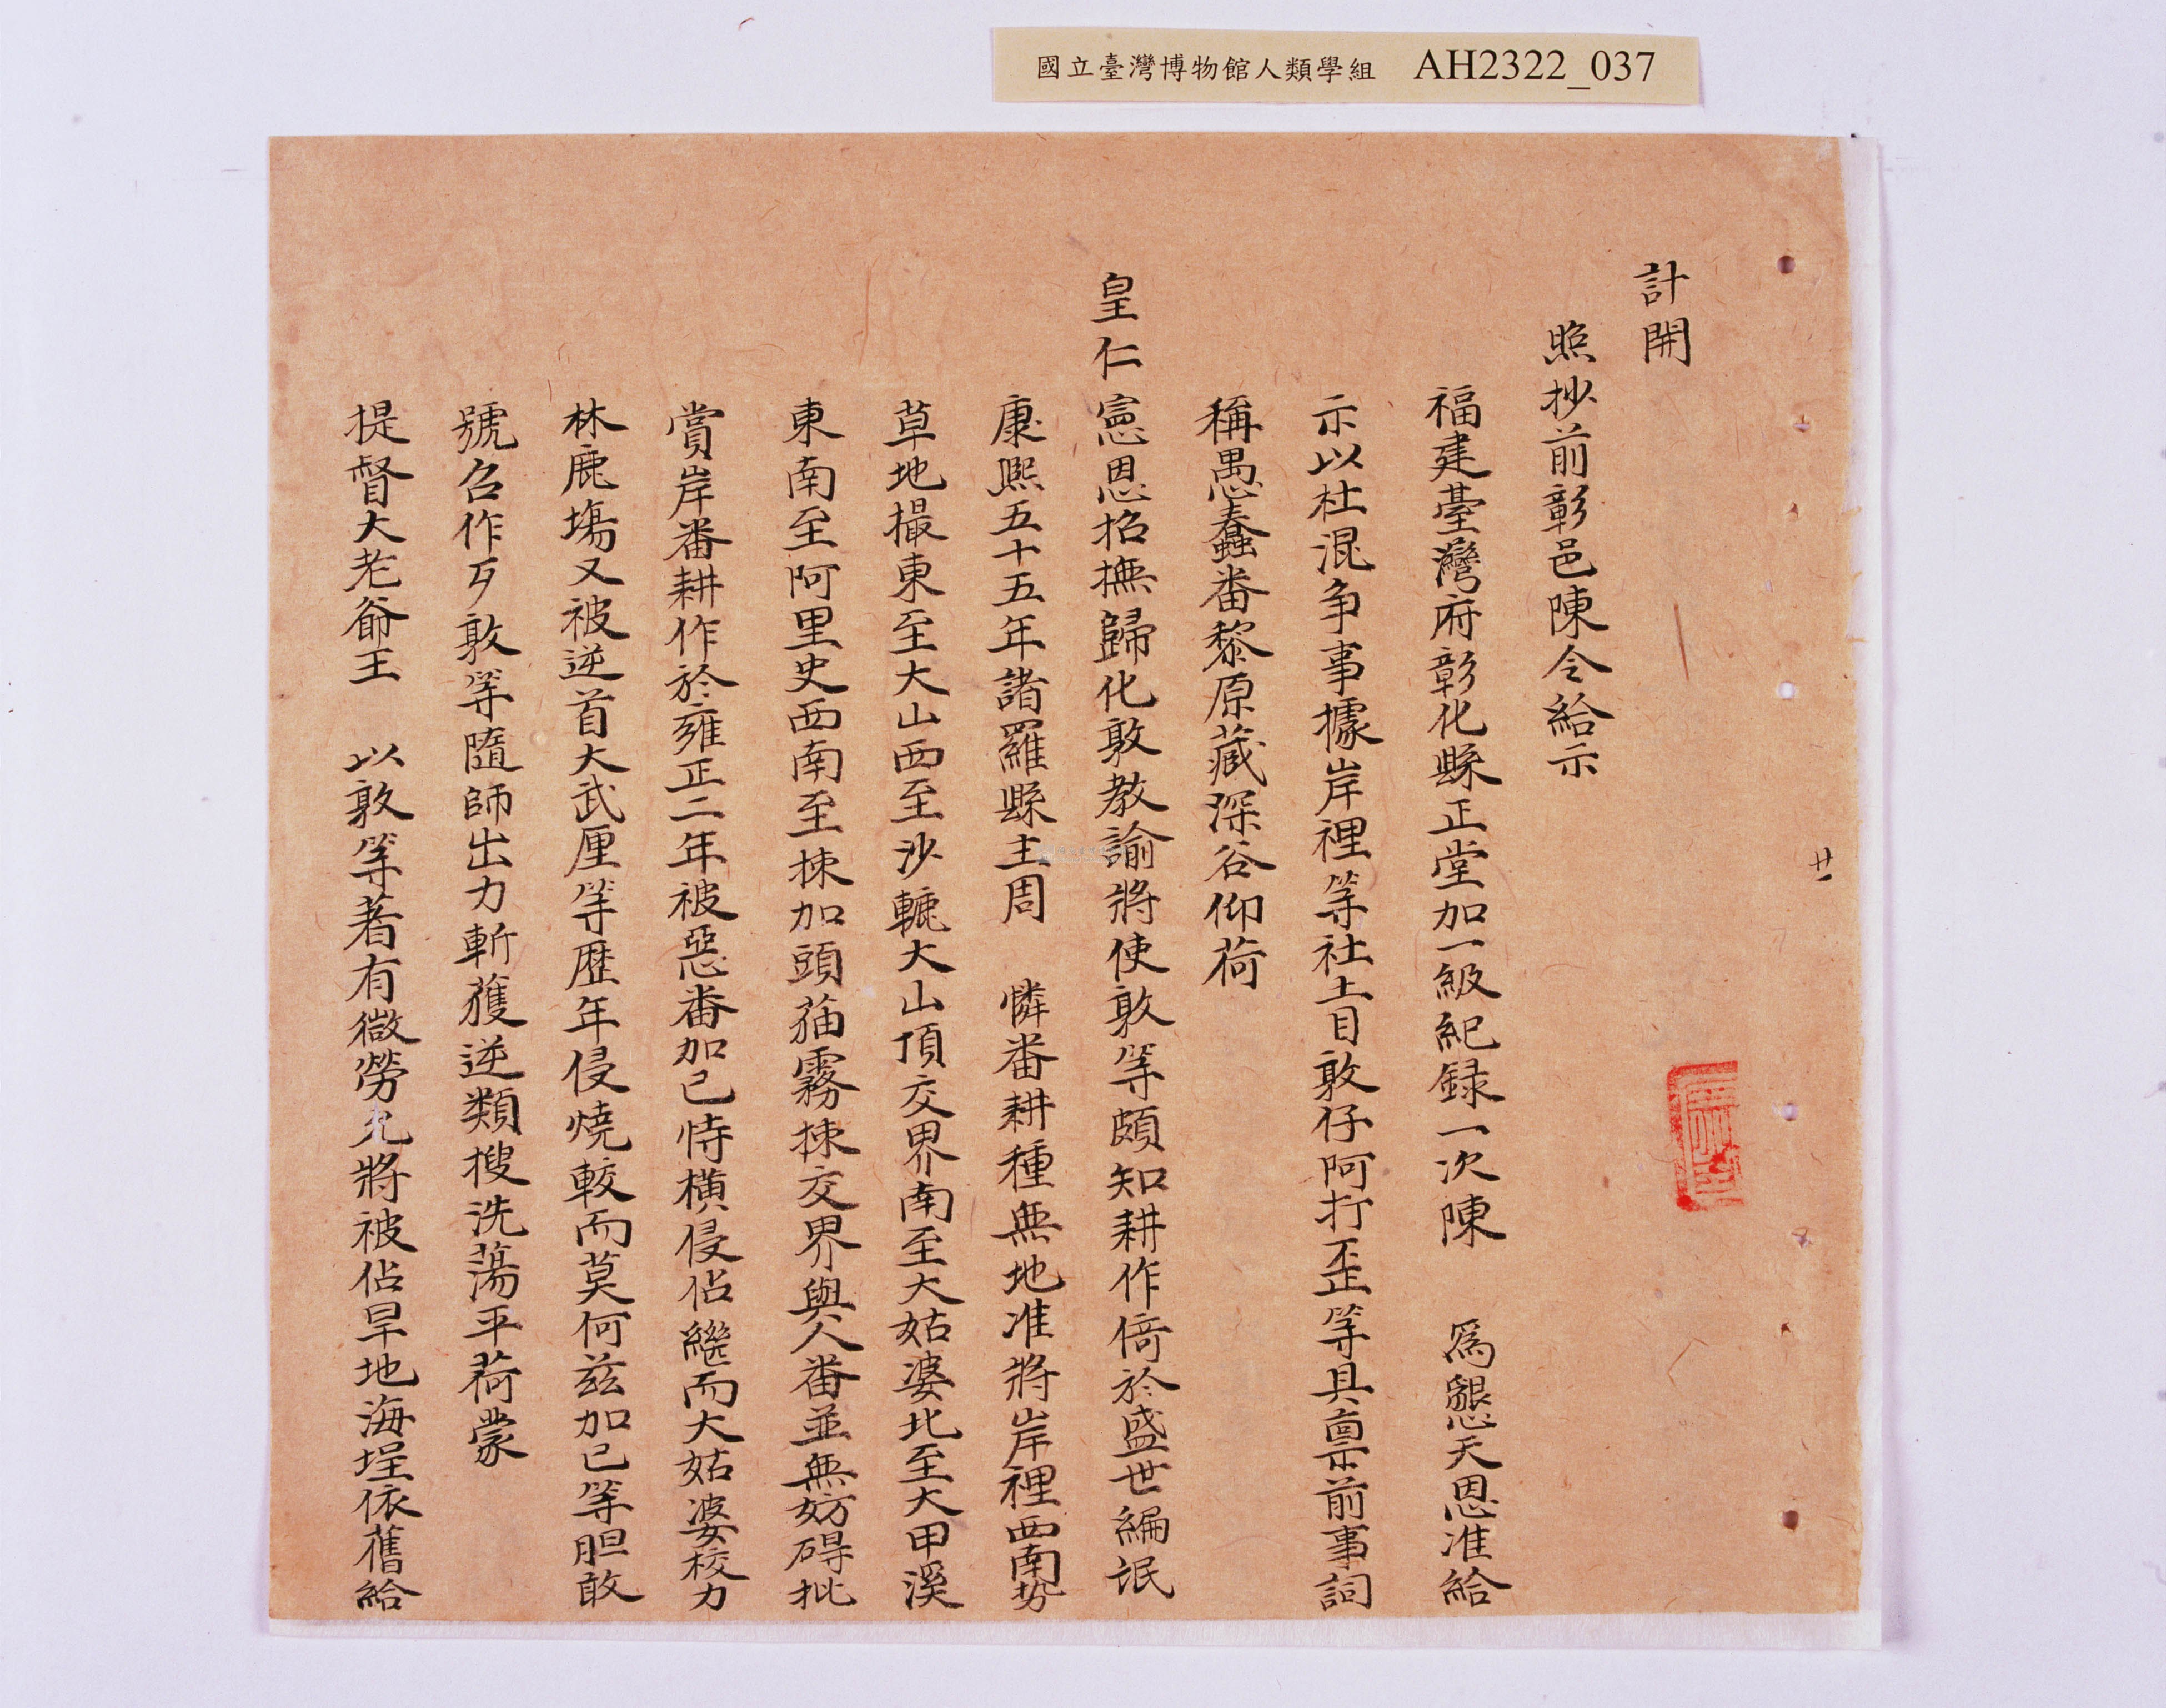 國立臺灣博物館人類學組 AH2322_037
廿一
計開
照抄前彰邑陳令給示
福建臺灣府彰化縣正堂加一級紀録一次陳 爲懇天恩准給
示以杜混争事據岸裡等社土目敦仔阿打歪等具禀前事詞
稱愚蠢番黎原藏深谷仰荷
皇仁憲恩招撫歸化敦教諭將使敦等頗知耕作倚於盛世編氓
康熙五十五年諸羅縣主周 憐番耕種無地准將岸裡西南勢
草地撮東至大山西至沙轆大山頂交界南至大姑婆北至大甲溪
東南至阿里史西南至揀加頭萡霧揀交界與人番並無妨碍批
賞岸番耕作於雍正二年被惡番加已恃橫侵佔繼而大姑婆校力
林鹿塲又被逆首大武厘等歷年侵燒較而莫何兹加已等胆敢
號召作歹敦等隨師出力斬獲逆類搜洗蕩平荷蒙
提督大老爺王 以敦等著有微勞允將被佔旱地海埕依舊給